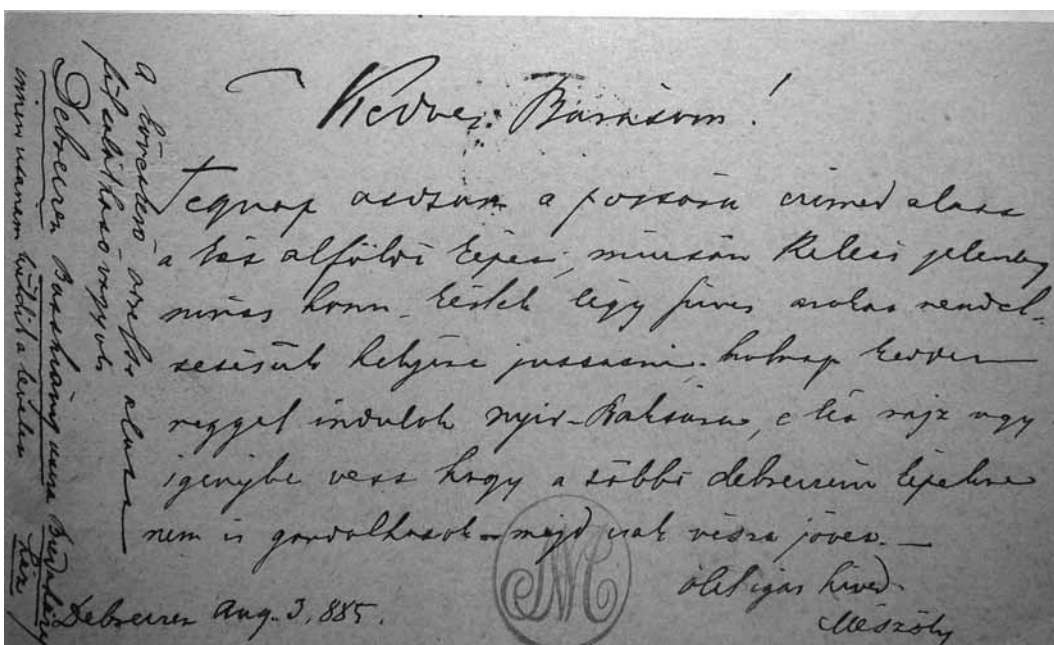 Kedves Barátom!
Tegnap adtam a postára címed alatt
a két alföldi képet, miután Keleti jelenleg
nincs honn. Kérlek légy szives azokat rendel-
tetésük helyére juttatni. holnap kedden
reggel indulok nyir-Baktára, e két rajz ugy
igénybe vesz hogy a többi debreceni képekre
nem is gondolhatok – majd csak vissza jövet. –
ölel igaz hived
Mészöly
Debreczen Aug. 3. 885.
A következő adresse alatt
feltalálható vagyok
Debreczen
innen utanam küldik a levelet
ház